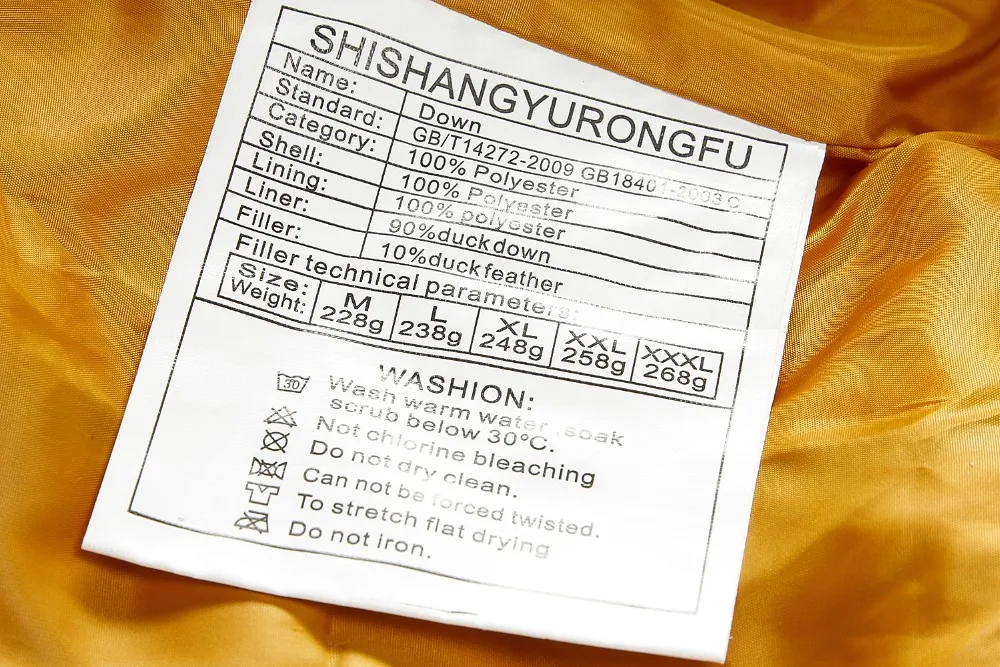 SHISHANGYURONGFU
Name: Down
Standard: GB/T14272-2009 GB18401-2003 C
Category: 100% Polyester
Shell: 100% Polyester
Lining: 100% polyester
Liner: 90%duckdown
Filler: 10%duckfeather
Filler technical parameters:
Size: M L XL XXL XXXL
Weight: 228g 238g 248g 258g 268g
WASHION:
30 Wash warm water ,soak
scrub below 30°C.
Not chlorine bleaching
Do not dry clean.
Can not be forced twisted.
To stretch flat drying
Do not iron.